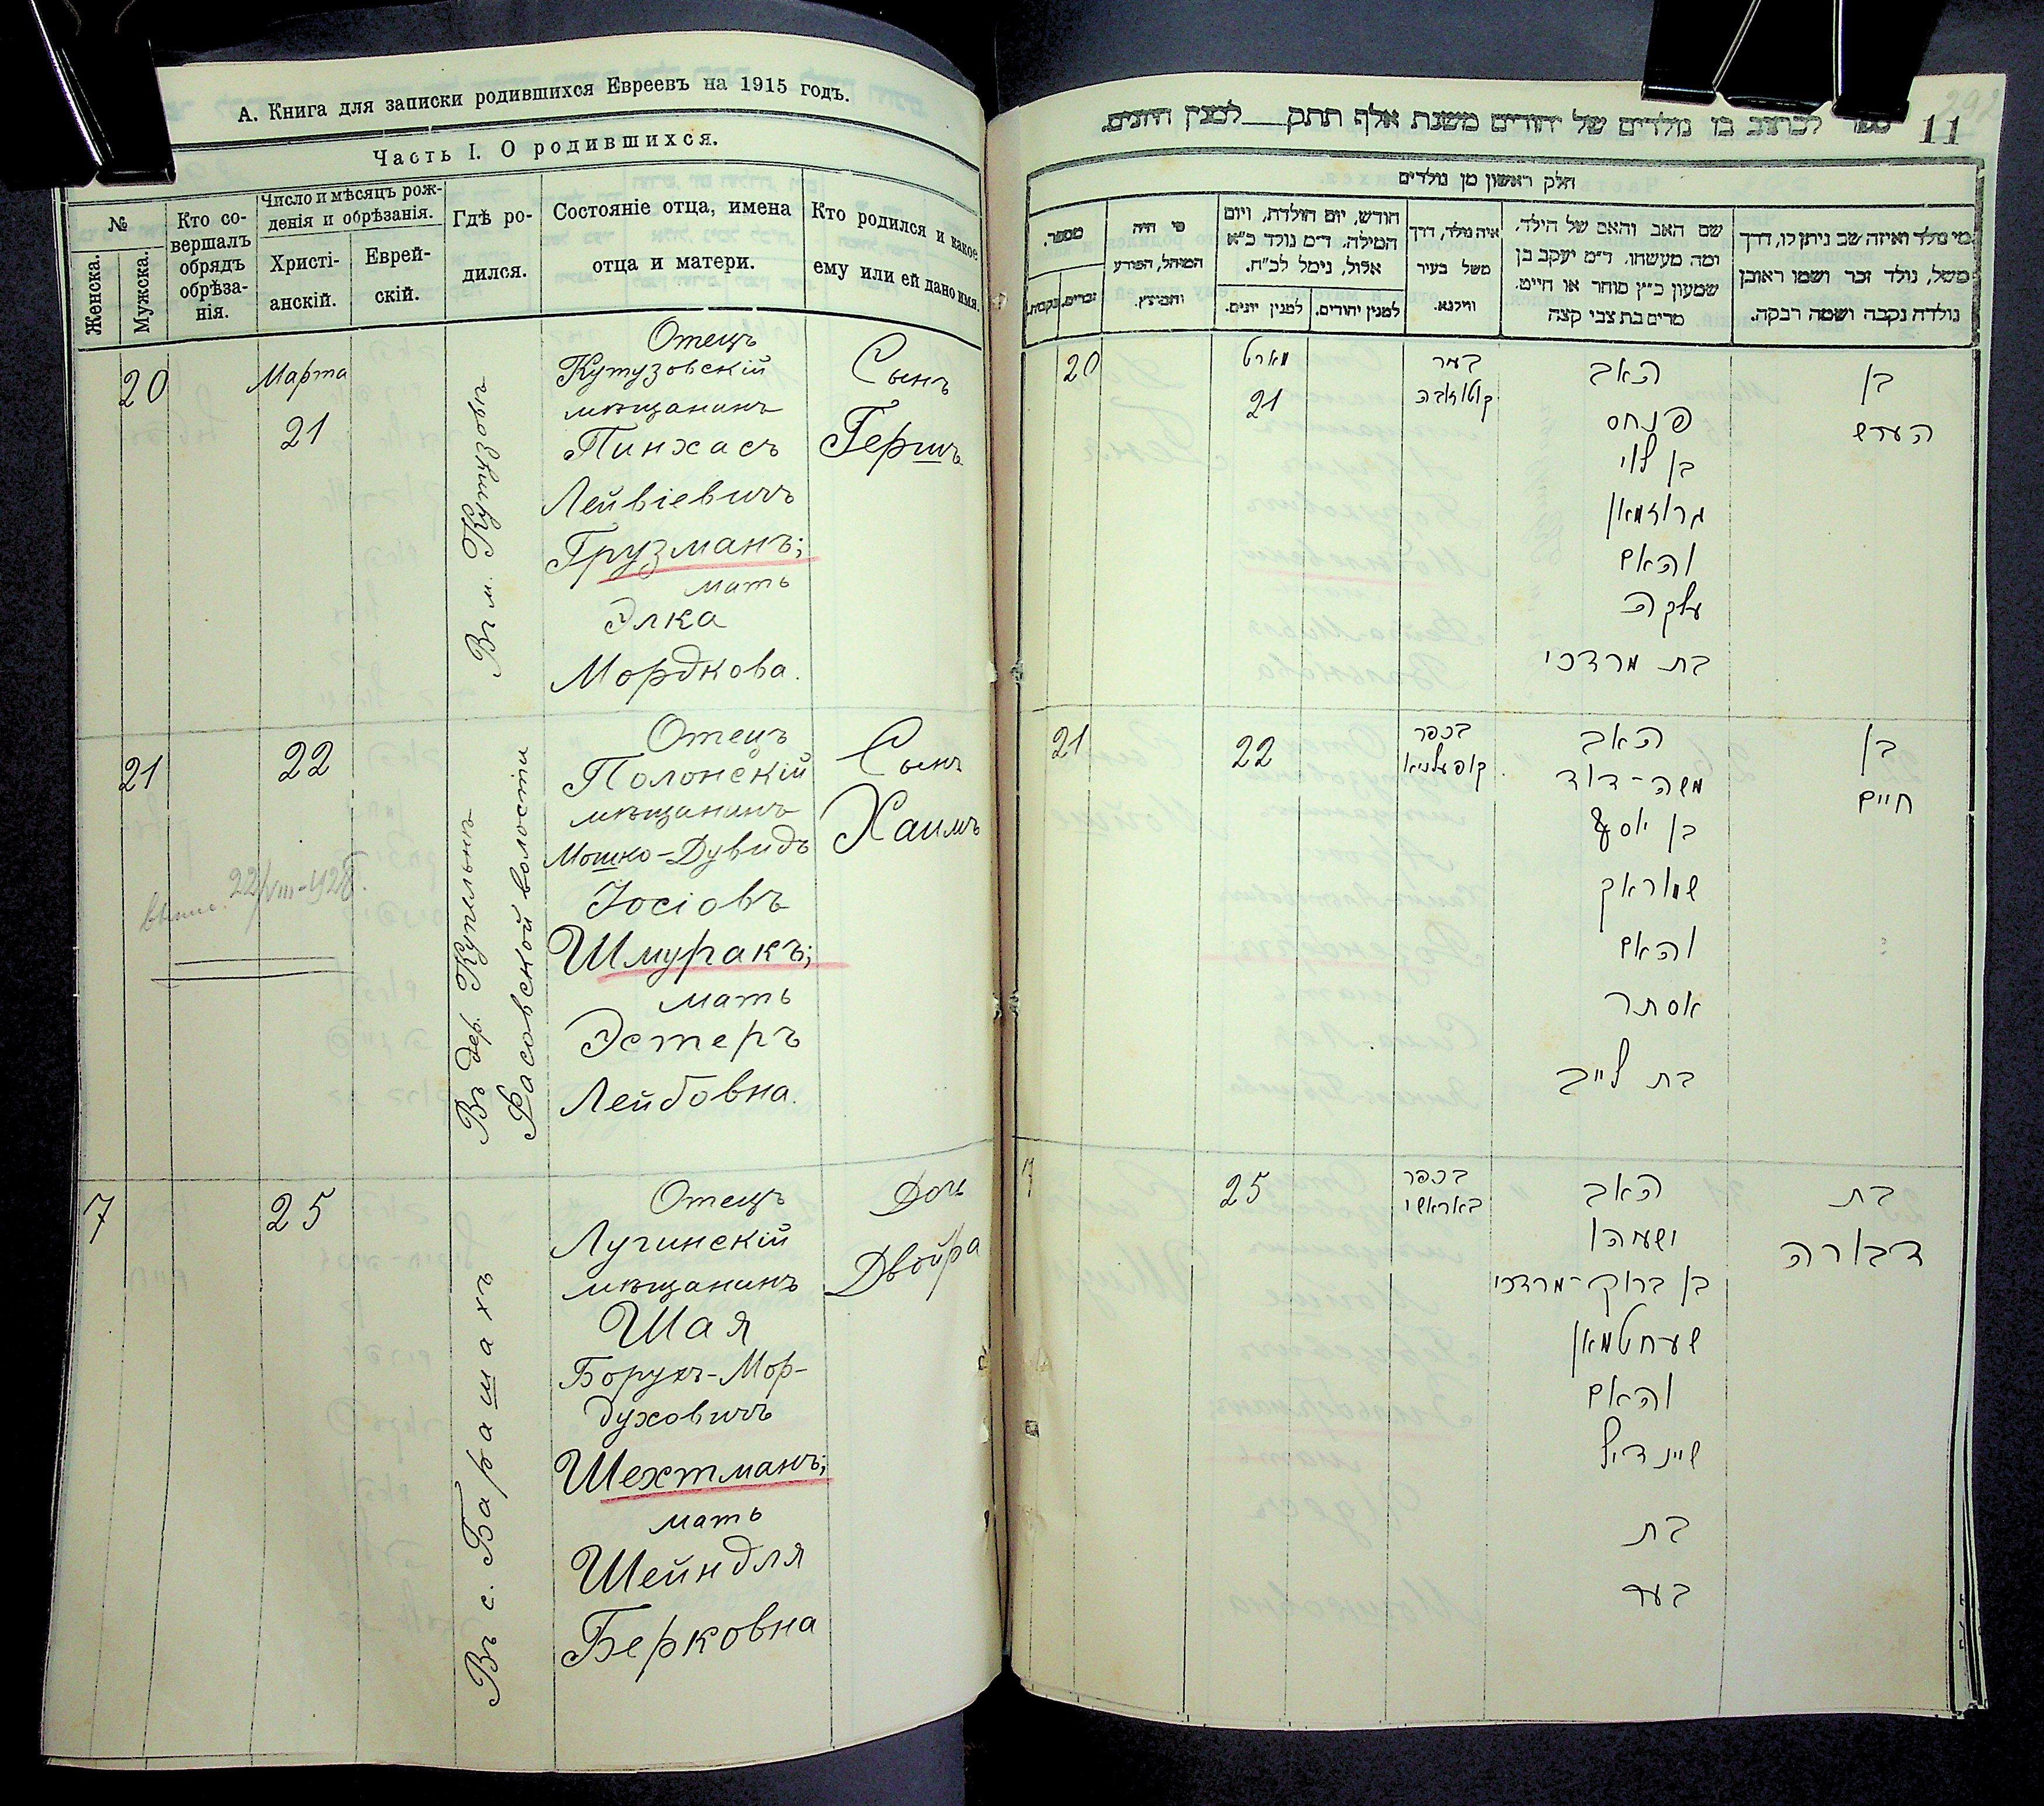 А. Книга для записки родившихся Евреевъ на 1915 годъ.
Часть I. О родившихся.
№
Женска.
Мужска.
Кто со-
вершалъ
обрядъ
обрѣза-
нія.
Число и мѣсяцъ рож-
денія и обрѣзанія.
Христі-
анскій.
Еврей-
скій.
Гдѣ ро-
дился.
Состояніе отца, имена
отца и матери.
Кто родился и какое
ему или ей дано имя.
20
Марта
21
Въ м. Кутузовъ
Отецъ
Кутузовскій
мѣщанинъ
Пинхасъ
Лейвіевичъ
Грузманъ;
мать
Элка
Мордкова.
Сынъ
Гершъ
21
22
22/VIII-928.
Въ дер. Купильнѣ
Фасовской волости
Отецъ
Полонскій
мѣщанинъ
Мошко-Дувидъ
Іосіовъ
Шмуракъ;
мать
Эстеръ
Лейбовна.
Сынъ
Хаимъ
7
25
Въ с. Барашахъ
Отецъ
Лугинскій
мѣщанинъ
Шая
Борухъ-Мор-
духовичъ
Шехтманъ;
мать
Шейндля
Берковна
Дочь
Двойра
292
11
ספר לכתוב בו נולדים של יהודים משנת אלף תתק___למנין היונים.
חלק ראשון מן נולדים
מספר.
זכרים.
נקבות.
מי היה
המוהל, הפורע
והמוצץ.
חודש, יום הולדת, ויום
המילה. ד״מ נולד כ״א
אלול, נימל לכ״ח.
למנין יונים.
למנין יהודים.
איה נולד, דרך
משל בעיר
ווילנא.
שם האב והאם של הילד,
ומה מעשהו. ד״מ יעקב בן
שמעון כ״ץ סוחר או חייט.
מרים בת צבי קצה
מי נולד ואיזה שם ניתן לו, דרך
משל, נולד זכר ושמו ראובן
נולדה נקבה ושמה רבקה.
20
מארט
21
קוטוזובה
האב
פנחס
בן לוי
גרוזמאן
והאם
עלקה
בת מרדכי
בן
הערש
21
22
בכפר
האב
משה-דוד
בן יוסף
שמוראק
והאם
אסתר
בת לייב
בן
חיים
7
25
בכפר
באראשי
האב
ישעיהו
בן ברוך-מרדכי
שעחטמאן
והאם
שיינדיל
בת
בער
בת
דבורה